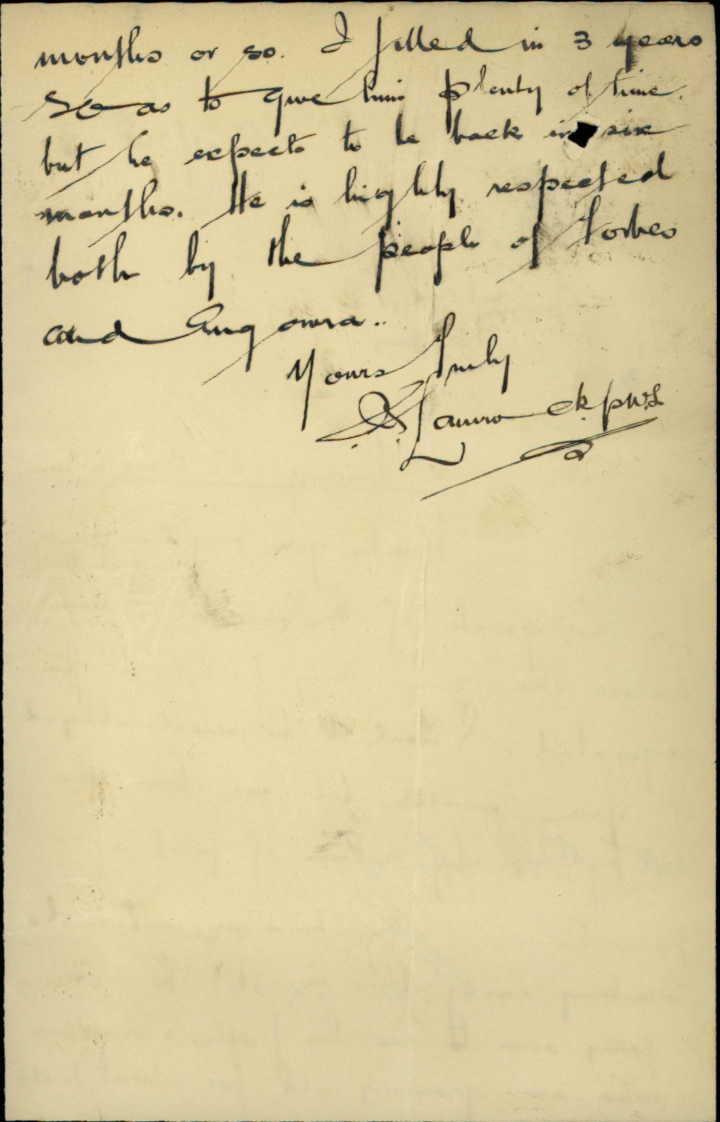 months or so. I filled in 3 years
so as to give him plenty of time.
but he expects to be back in six
months. He is highly respected
both by the people of Forbes
and Eugowra..
Yours truly